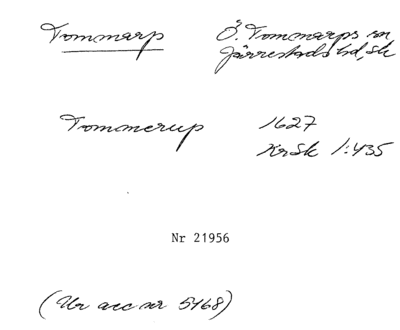 Tommarp Ö. Tommarps sn
Järrestads hd, Sk
Tommerup 1627
KrSk 1:435
Nr 21956
(Ur acc nr 5468)